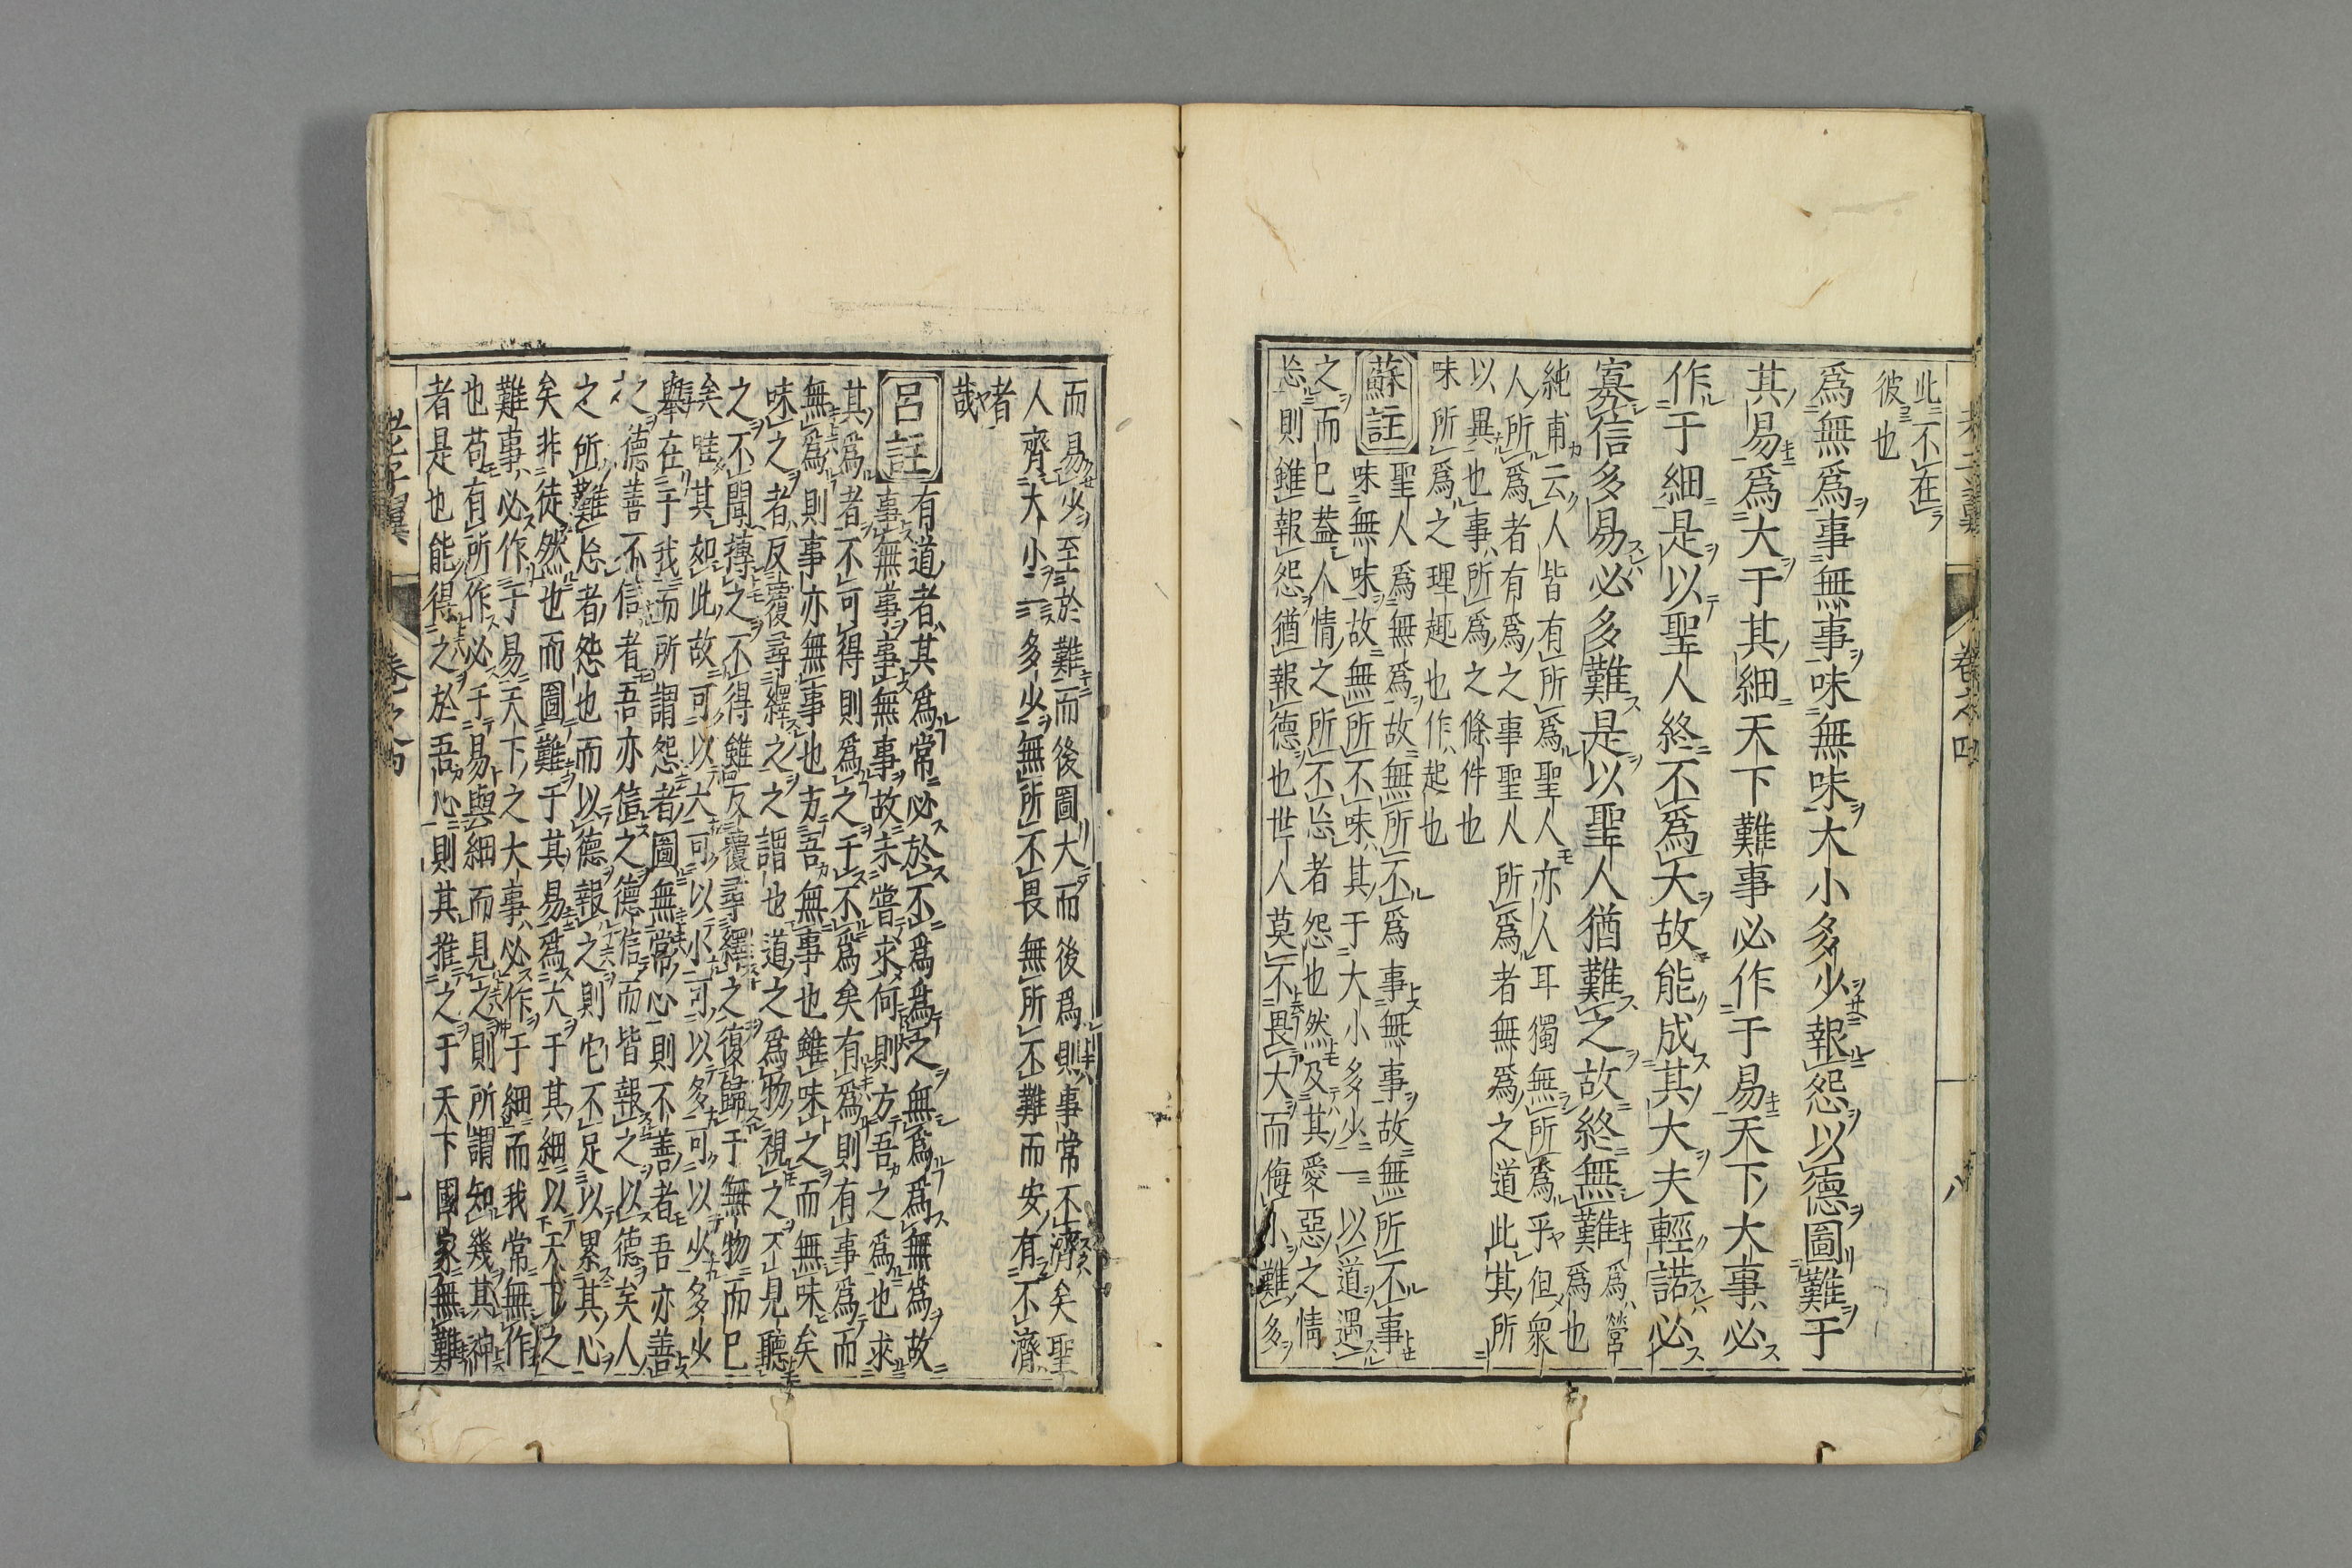 老子翼 卷之四 八
此不在
彼也
爲無爲事無事味無味大小多少報怨以德圖難于
其易爲大于其細天下難事必作于易天下大事必
作于細是以聖人終不爲大故能成其大夫輕諾必
寡信多易必多難是以聖人猶難之故終無難 爲營爲也
純甫云人皆有所爲聖人亦人耳獨無所爲乎但衆
人所爲者有爲之事聖人所爲者無爲之道此其所
以異也事所爲之條件也
味所爲之理趣也作起也
蘇註 聖人爲無爲故無所不爲事無事故無所不事
味無味故無所不味其于大小多少一以道遇
之而已蓋人情之所不忘者怨也然及其愛惡之情
忘則雖報怨猶報德也世人莫不畏大而侮小難多
而易少至於難而後圖大而後爲則事常不濟矣聖
人齊大小一多少無所不畏無所不難而安有不濟
者
哉
呂註 有道者其爲常必於不爲爲之無爲爲無爲故
事無事事無事故未嘗求何則方吾之爲也求
其爲者不可得則爲之于不爲矣有爲則有事爲而
無爲則事亦無事也方吾無事也雖味之而無味矣
味之者反覆尋繹之之謂也道之爲物視之不見聽
之不聞摶之不得雖反覆尋繹之復歸于無物而已
矣唯其如此故可以大可以小可以多可以少多少
舉在于我而所謂怨者圖無常心則不善者吾亦善
之德善不信者吾亦信之德信而皆報之以德矣人
之所難忘者怨也而以德報之則它不足以累其心
矣非徒然也而圖難于其易爲大于其細以天下之
難事必作于易天下之大事必作于細而我常無作
也苟有所作必于易與細而見之則所謂知幾其神
者是也能得之於吾心則其推之于天下國家無難
老子翼 卷之四 九